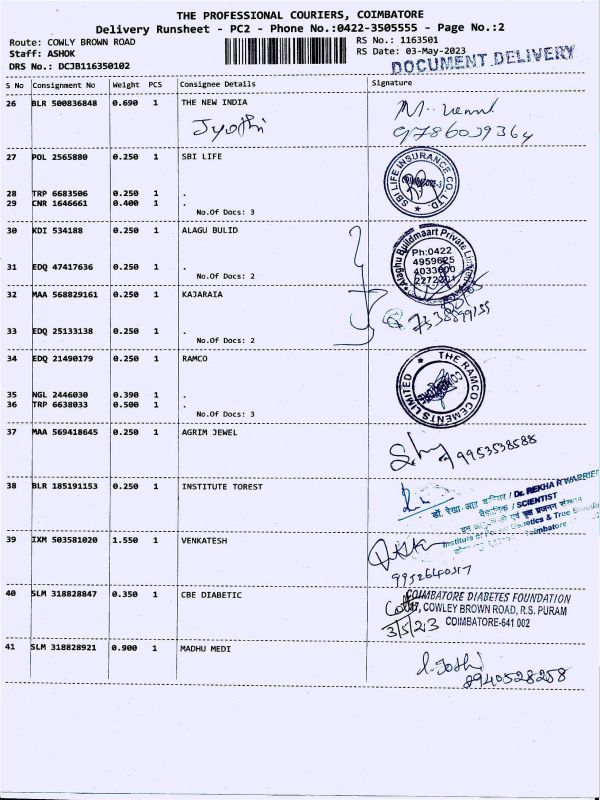 THE PROFESSIONAL COURIERS, COIMBATORE
Delivery Runsheet - PC2 - Phone No.:0422-3505555 - Page No.:2
Route: COWLY BROWN ROAD
RS No.: 1163501
Staff: ASHOK
RS Date: 03-May-2023
DRS No.: DCJB116350102
DOCUMENT DELIVERY
S No Consignment No Weight PCS Consignee Details Signature
26 BLR 500836848 0.690 1 THE NEW INDIA
Jyothi
9786039364
27 POL 2565880 0.250 1 SBI LIFE
SBI LIFE INSURANCE CO. LTD
28 TRP 6683506 0.250 1 .
29 CNR 1646661 0.400 1 .
No.Of Docs: 3
30 KDI 534188 0.250 1 ALAGU BULID
Alaghu Buildmaart Private
Ph:0422
4959625
4033600
2272201
31 EDQ 47417636 0.250 1 .
No.Of Docs: 2
32 MAA 568829161 0.250 1 KAJARAIA
33 EDQ 25133138 0.250 1 .
No.Of Docs: 2
34 EDQ 21490179 0.250 1 RAMCO
THE RAMCO CEMENTS LIMITED
35 NGL 2446030 0.390 1 .
36 TRP 6638033 0.500 1 .
No.Of Docs: 3
37 MAA 569418645 0.250 1 AGRIM JEWEL
9953538588
38 BLR 185191153 0.250 1 INSTITUTE TOREST
Dr. REKHA R WARRIER
वैज्ञानिक / SCIENTIST
Institute of Genetics & Tree
Coimbatore
39 IXM 503581020 1.550 1 VENKATESH
9952640317
40 SLM 318828847 0.350 1 CBE DIABETIC
COIMBATORE DIABETES FOUNDATION
COWLEY BROWN ROAD, R.S. PURAM
3/5/23 COIMBATORE-641 002
41 SLM 318828921 0.900 1 MADHU MEDI
J. Jothi
8940528258